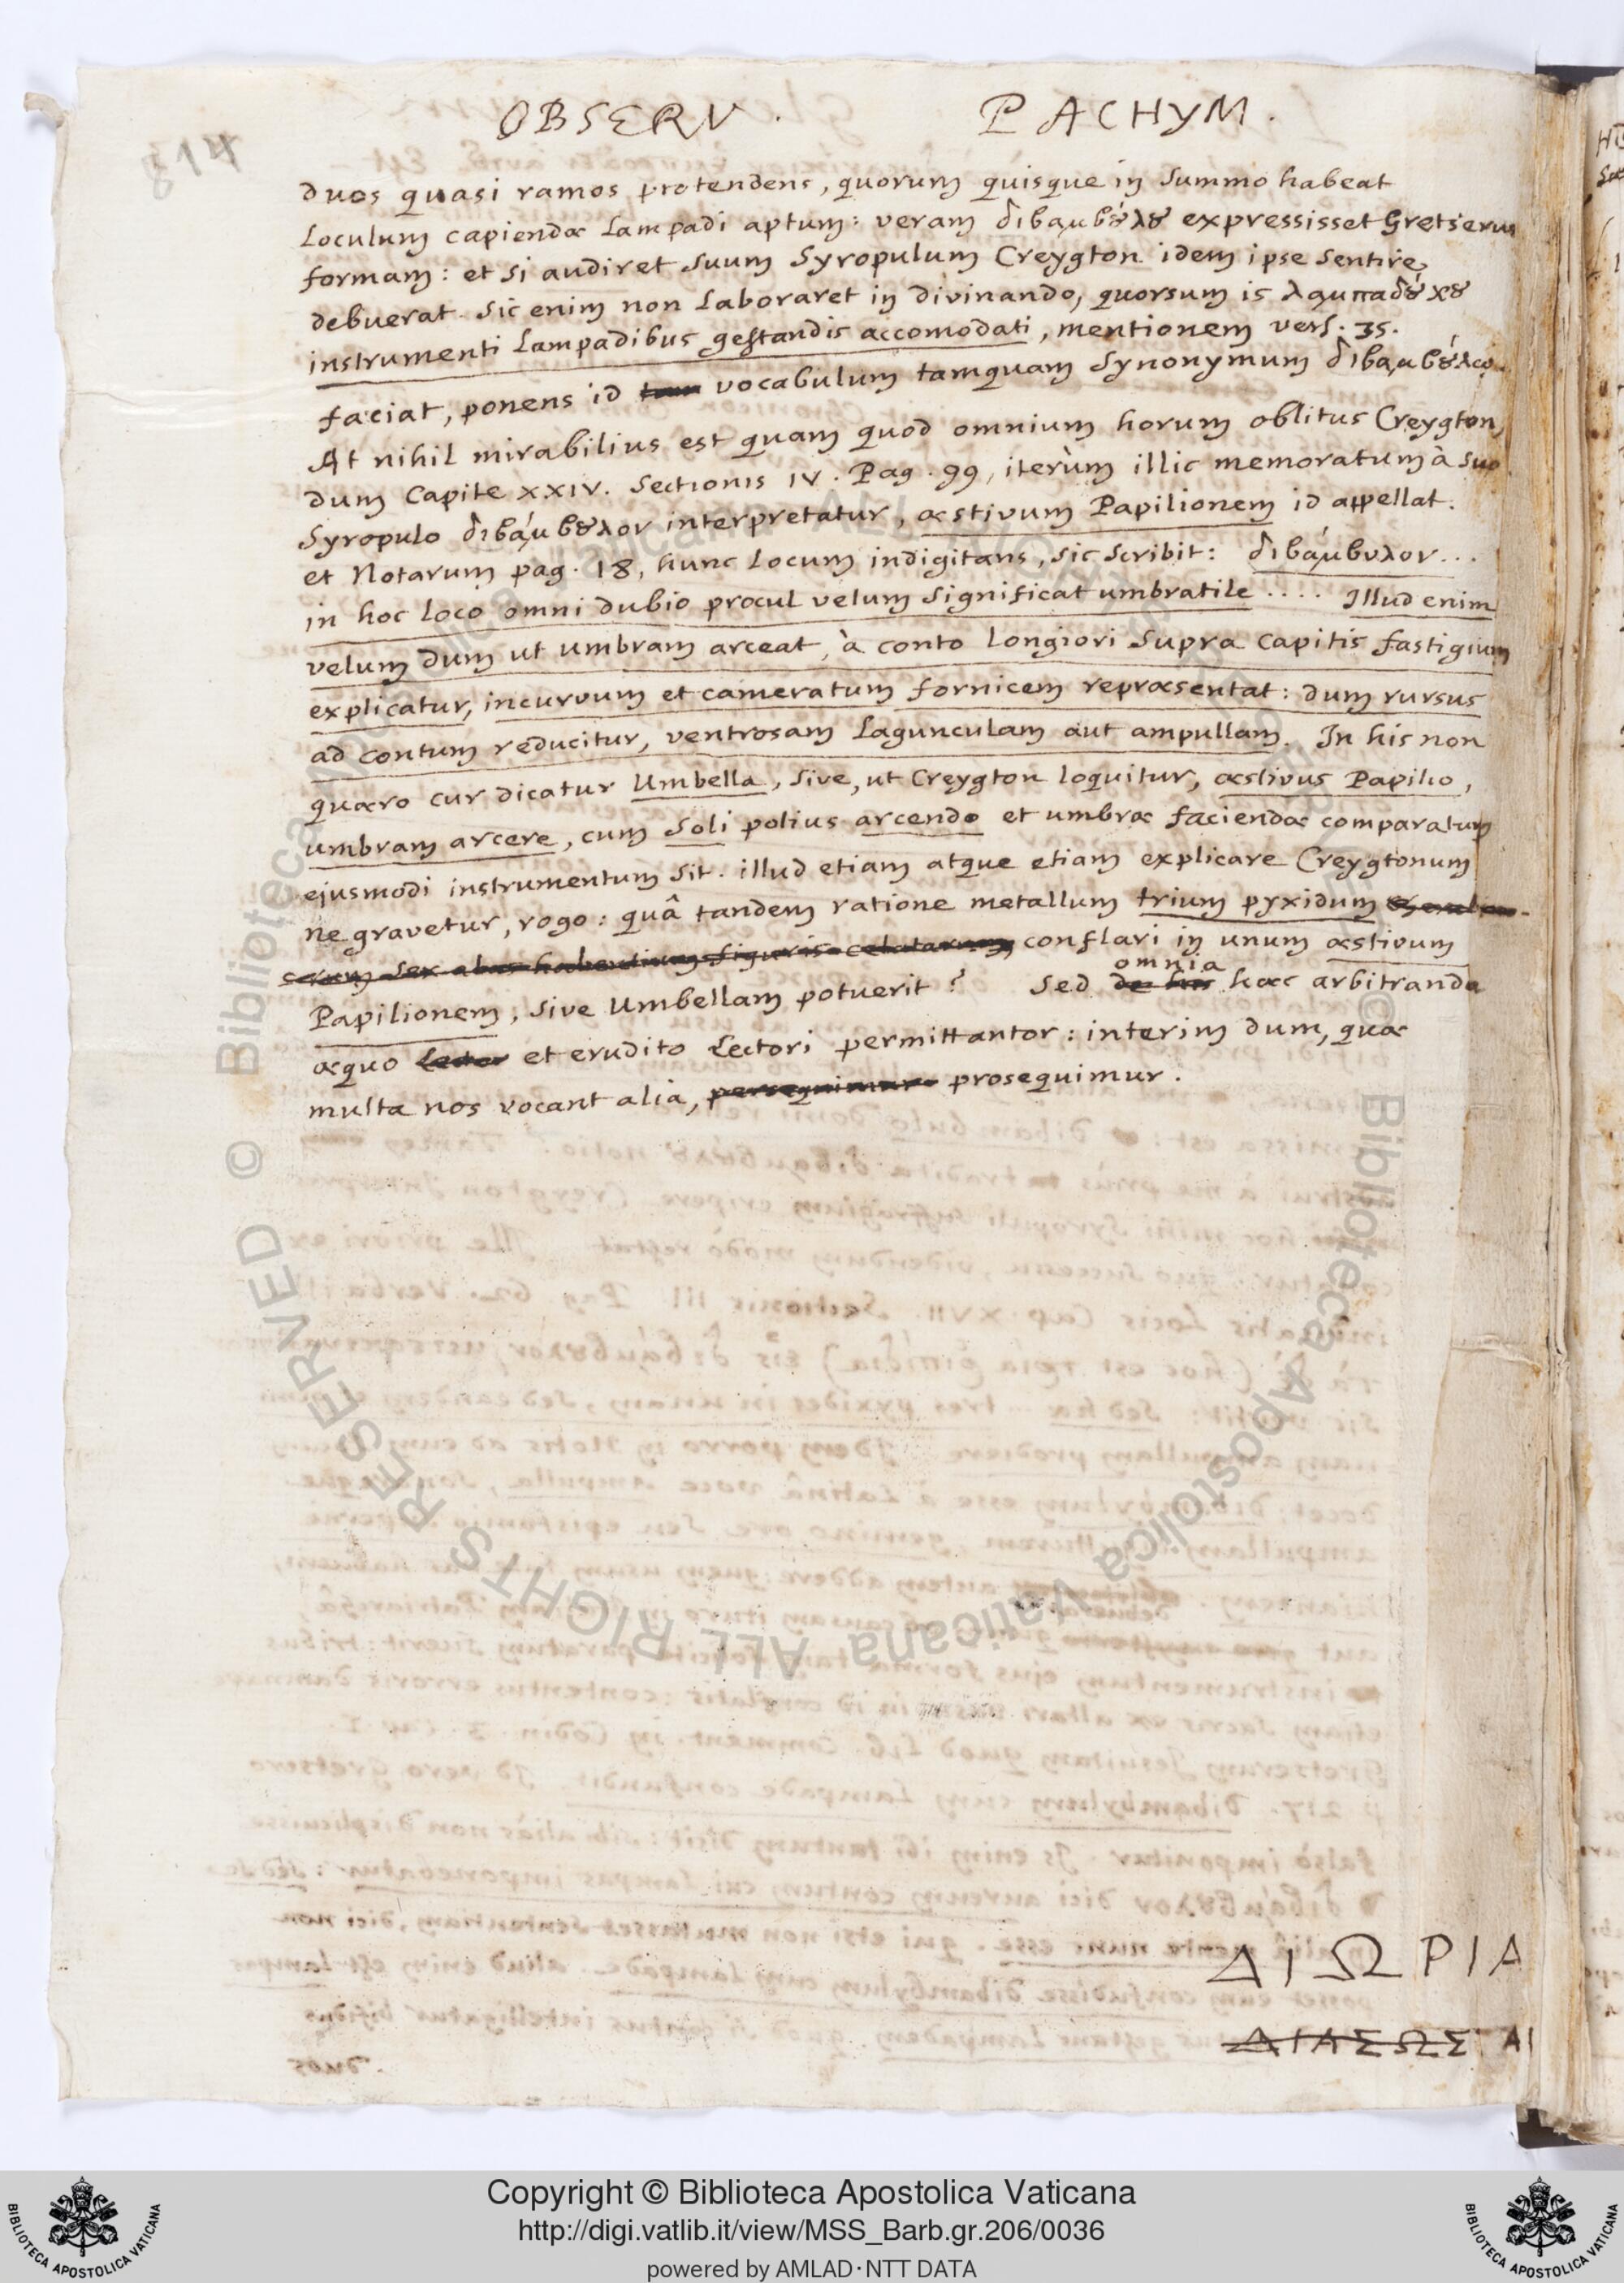 814
OBSERV. PACHYM.
duos quasi ramos protendens, quorum quisque in summo habeat
Loculum capiendæ Lampadi aptum: veram διβαμβούλου expressisset Gretserus
formam: et si audiret suum Syropulum Creygton idem ipse sentire
debuerat. Sic enim non Laboraret in divinando, quorsum is λαμπαδούχου
instrumenti Lampadibus gestandis accomodati, mentionem vers. 35.
faciat, ponens id vocabulum tamquam Synonymum διβαμβούλῳ.
At nihil mirabilius est quam quod omnium horum oblitus Creygton,
dum Capite XXIV. Sectionis IV. Pag. 99, iterùm illic memoratum à suo
Syropulo διβάμβουλον interpretatur, æstivum Papilionem id appellat.
et Notarum pag. 18, hunc Locum indigitans, sic scribit: διβάμβυλον...
in hoc loco omni dubio procul velum significat umbratile .... Illud enim
velum dum ut umbram arceat, à conto longiori supra capitis fastigium
explicatur, incurvum et cameratum fornicem repræsentat: dum rursus
ad contum reducitur, ventrosam Lagunculam aut ampullam. In his non
quæro cur dicatur Umbella, sive, ut Creygton loquitur, æstivus Papilio,
umbram arcere, cum Soli potius arcendo et umbræ faciendæ comparatum
ejusmodi instrumentum sit. illud etiam atque etiam explicare Creygtonum
ne gravetur, rogo: quâ tandem ratione metallum trium pyxidum
sex alas habentium figuris celatarum conflari in unum æstivum
Papilionem, sive Umbellam potuerit? Sed de his omnia hæc arbitranda
æquo Lector et erudito Lectori permittantor: interim dum, quæ
multa nos vocant alia, persequimur prosequimur.
ΔΙΩΡΙΑ
ΔΙΑΣΩΣΑΙ
Copyright © Biblioteca Apostolica Vaticana
http://digi.vatlib.it/view/MSS_Barb.gr.206/0036
powered by AMLAD·NTT DATA
BIBLIOTECA APOSTOLICA VATICANA
BIBLIOTECA APOSTOLICA VATICANA
© Biblioteca Apostolica Vaticana ALL RIGHTS RESERVED